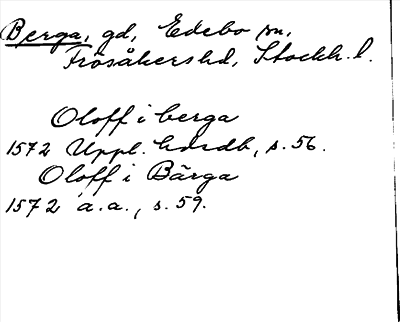 Berga, gd, Edebo sn,
Frösåkers hd, Stockh. l.
Oloff i berga
1572 Uppl. handb, s. 56.
Oloff i Bärga
1572 a.a., s. 59.